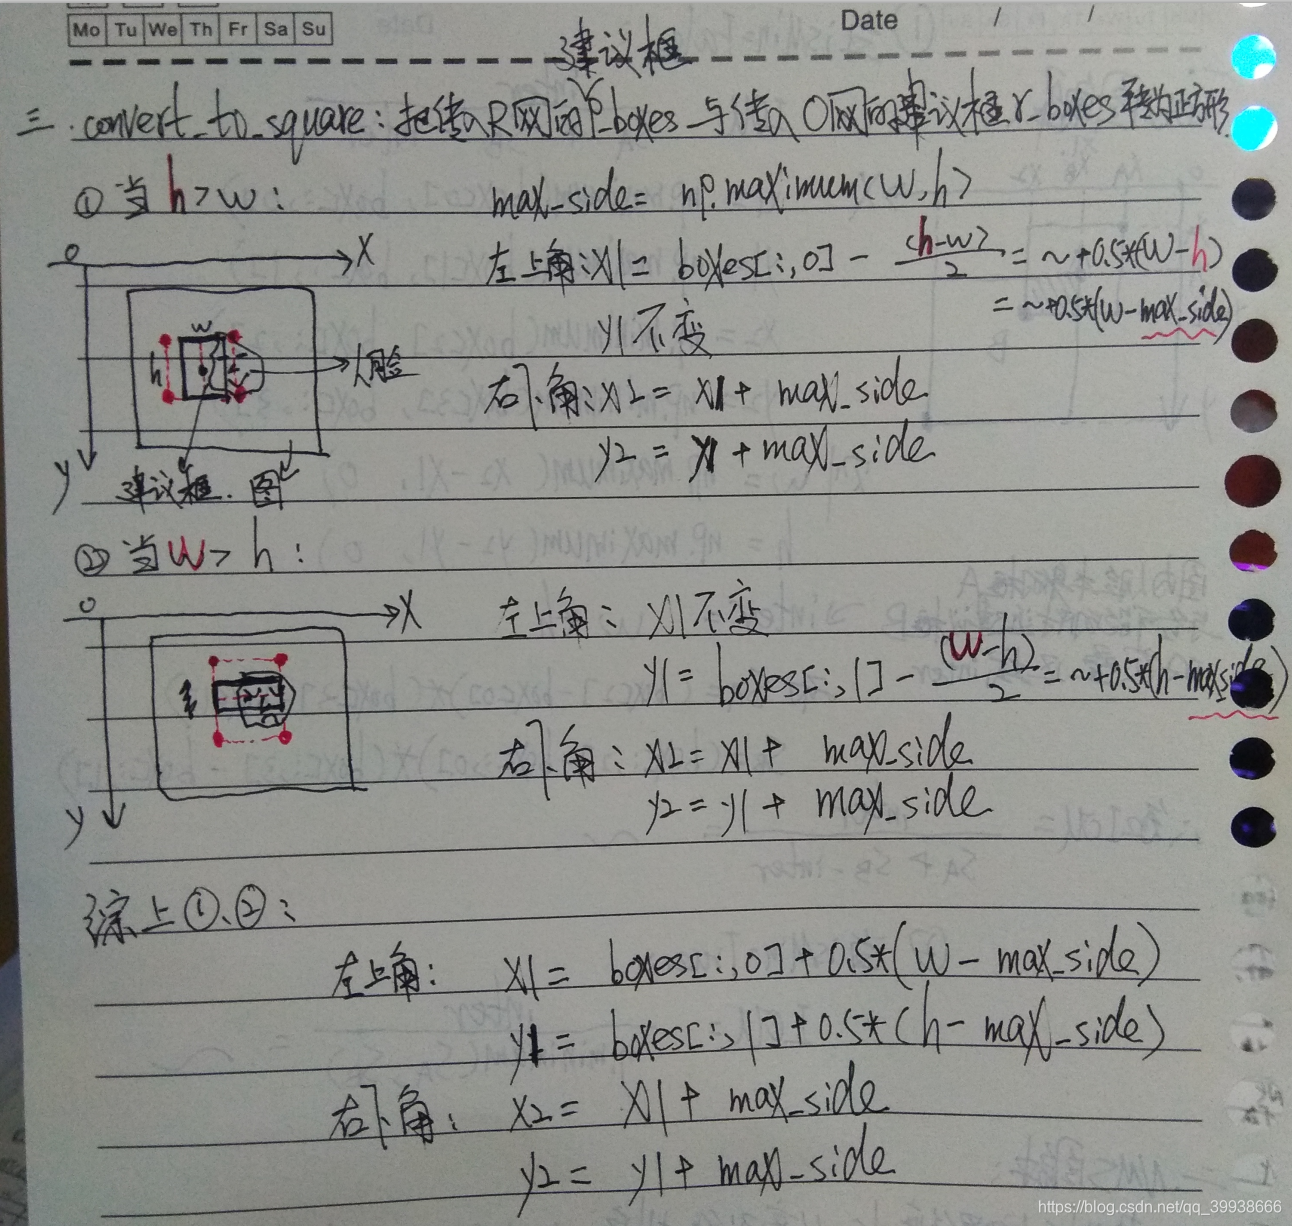 Mo Tu We Th Fr Sa Su
Date / /
建议框
三. convert_to_square: 把传入R网的P_boxes与传入O网的建议框r_boxes转为正方形
① 当h>w:
max_side= np.maximum(w,h)
左上角: x1= boxes[:,0] - (h-w)/2 = ~+0.5*(w-h)
= ~+0.5*(w-max_side)
y1不变
右下角: x2 = x1 + max_side
y2 = y1 + max_side
0 X
w
h
人脸
y
建议框. 图
② 当w>h:
左上角: x1不变
y1= boxes[:,1] - (w-h)/2 = ~+0.5*(h-max_side)
右下角: x2=x1+ max_side
y2=y1+ max_side
0 X
y
综上①、②:
左上角: x1= boxes[:,0]+0.5*(w-max_side)
y1= boxes[:,1]+0.5*(h-max_side)
右下角: x2= x1+ max_side
y2= y1+ max_side
https://blog.csdn.net/qq_39938666